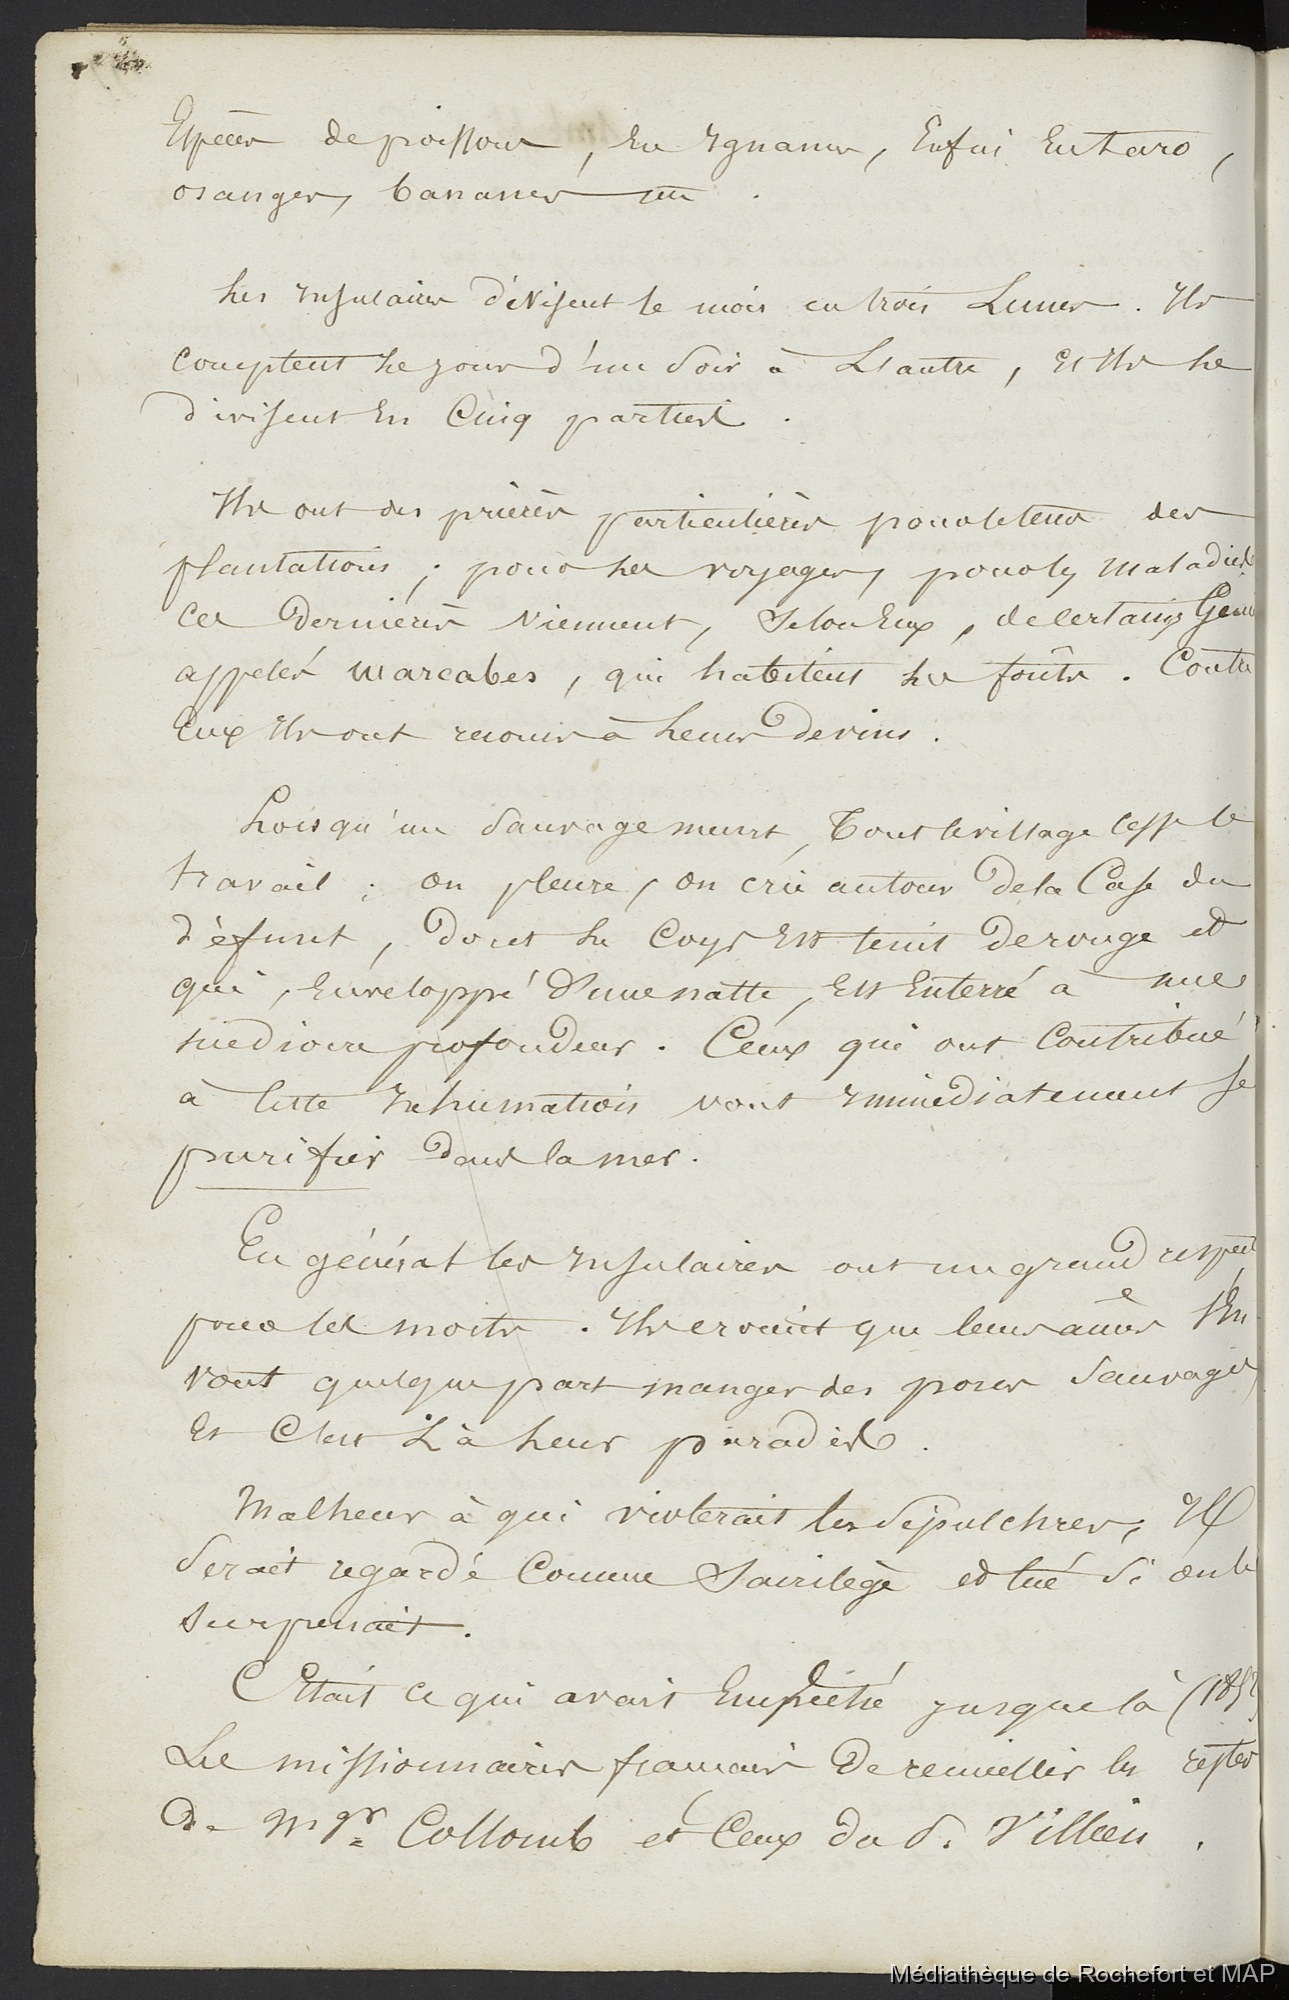 Espèces de poissons, En Ygnames, Enfin En taro,
oranges, bananes
Les Insulaires divisent le mois en trois Lunes. Ils
comptent le jour d'un soir à L'autre, Et Ils le
divisent En Cinq parties.
Ils ont des prières particulières pour les
plantations ; pour les voyages, pour les Maladies
Ces Dernières Viennent, Selon Eux, de certains Génies
appelés Marcabes, qui habitent les forêts. Contre
Eux Ils ont recours à Leurs Devins.
Lorsqu'un Sauvage meurt, Tout le village cesse le
travail ; on pleure, on crie autour De la Case du
défunt, Dont Le Corps Est teint De rouge et
qui, Enveloppé D'une natte, Est Enterré à une
médiocre profondeur. Ceux qui ont Contribué
à Cette Inhumation vont Immédiatement se
purifier Dans la mer.
En général les Insulaires ont un grand respect
pour les morts. Ils croient que leurs âmes s'En
vont quelque part manger des porcs Sauvages
Et C'est Là Leur paradis.
Malheur à qui violerait les Sépulchres, Il
Serait regardé Comme Sacrilège et tué Si on le
Surprenait.
C'Etait ce qui avait Empêché jusque là
Les missionnaires français De recueillir les restes
De Mgr. Collomb et Ceux du P. Villien.
Médiathèque de Rochefort et MAP